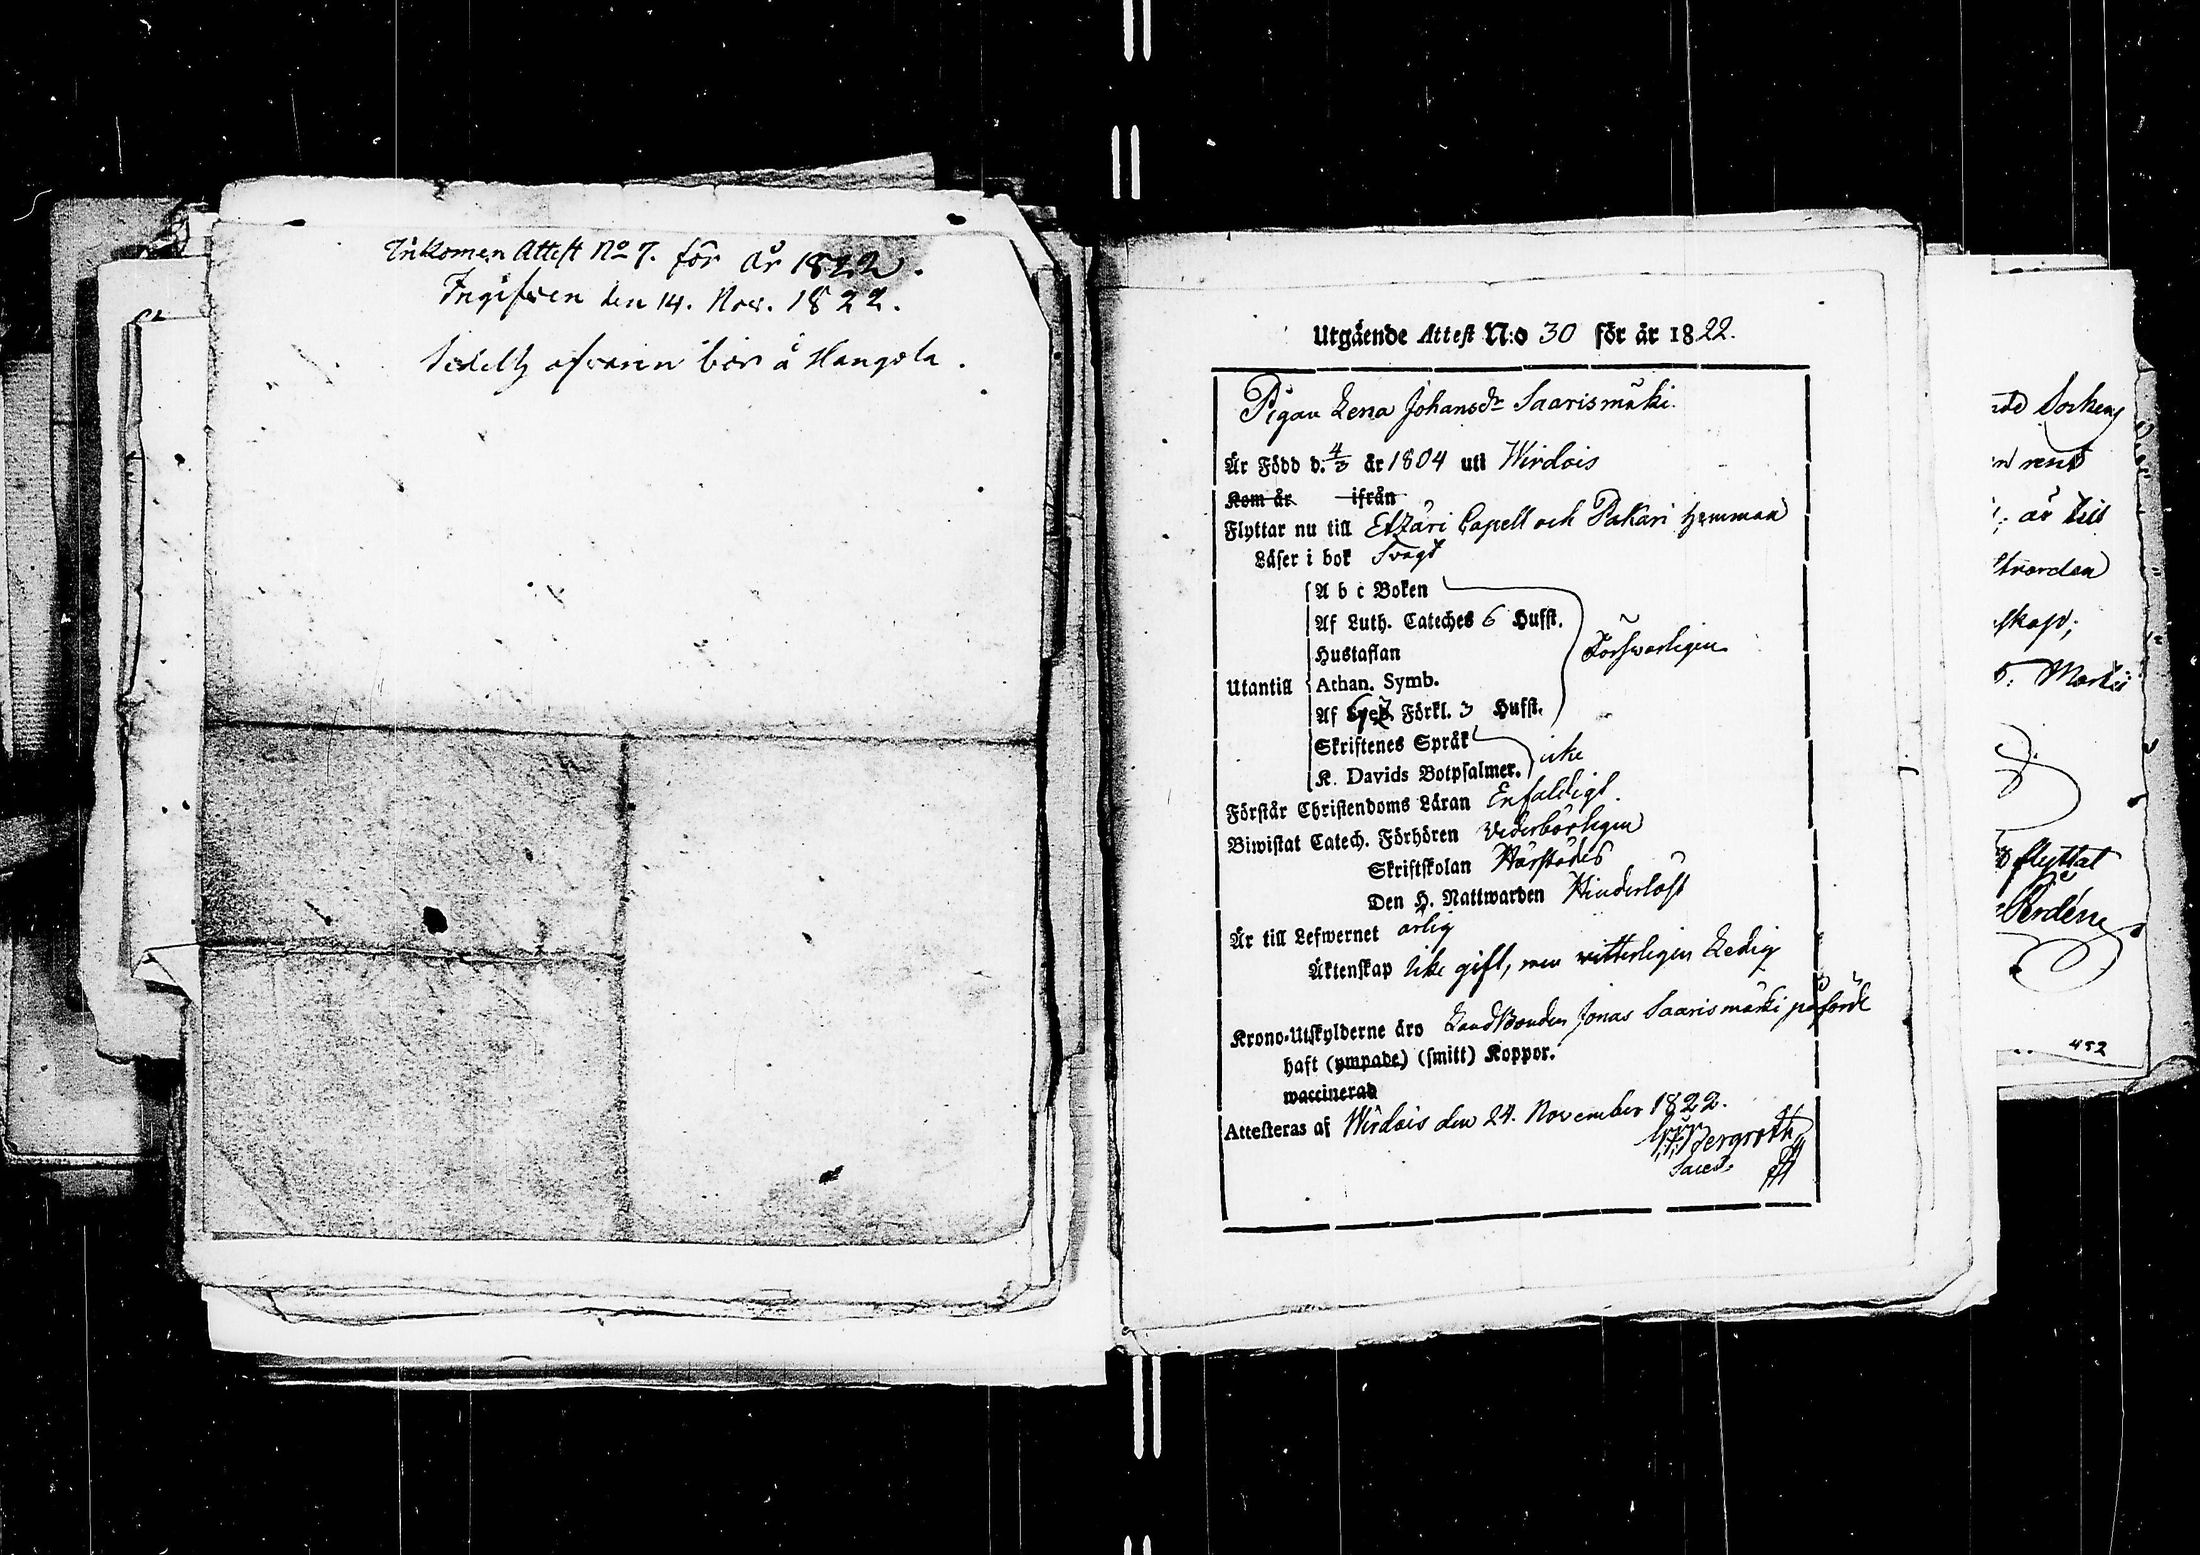 Inkomen Attest No 7. för år 1822.
Ingifven den 14. Nov. 1822.
Sedelh afvaren bor å Hangola.
Utgående Attest N:o 30 för år 1822.
Pigan Lena Johansdr Saarismäki.
Är Född d. 4/3 år 1804 uti Wirdois
Kom år ifrån
Flyttar nu till Etzäri Capell och Pakari Hemman
Läser i bok Svagt
A b c Boken
Af Luth. Cateches 6 Hufst.
Hustaflan
Försvarligen
Utantill
Athan. Symb.
Af Förkl. 3 Hufst.
Skriftenes Språk
icke
K. Davids Botpsalmer.
Förstår Christendoms Läran Enfaldigt.
Biwistat Catech. Förhören Vederbörligen
Skriftskolan Härstädes
Den H. Nattwarden Hinderlöst
Är till Lefwernet ärlig
Äktenskap icke gift, men vitterligen Ledig
Krono-Utskylderne äro LandBonden Jonas Saarismäki påförde
haft (ympade) (smitt) Koppor.
waccinerad
Attesteras af Wirdois den 24. November 1822.
Bergroth
Sacell.
Sockens
rent
är
skap;
flyttat
452